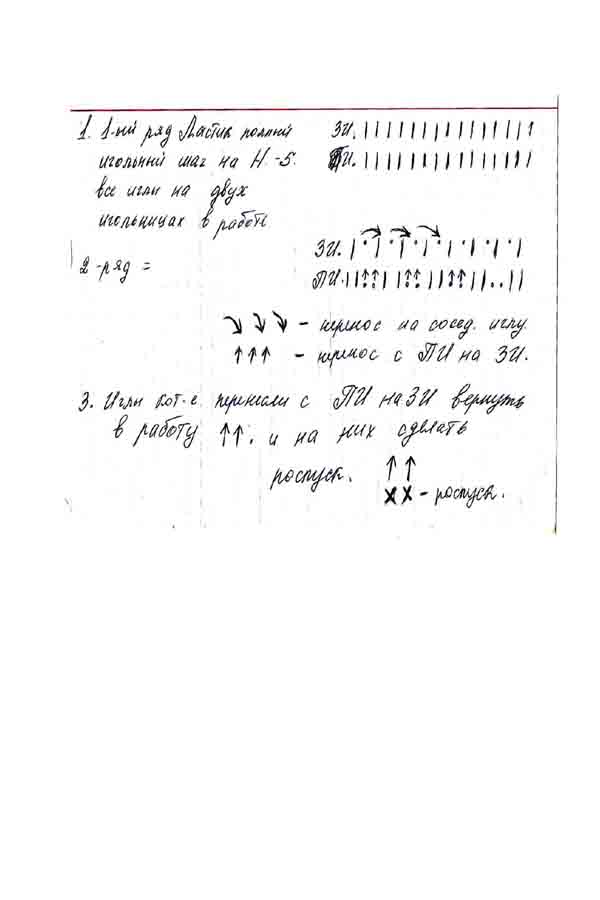 1. 1-ый ряд Ластик полный
игольный шаг на Н-5.
все иглы на двух
игольницах в работе
ЗИ. | | | | | | | | | | | | | | |
ПИ. | | | | | | | | | | | | | | |
2-ряд =
ЗИ. | · | · | · | · | · | · | · |
ПИ. | | ↑↑ | | ↑↑ | | ↑↑ | | . . | |
↘ ↘ ↘ - перенос на сосед. иглу.
↑ ↑ ↑ - перенос с ПИ на ЗИ.
3. Иглы кот-е перенесли с ПИ на ЗИ вернуть
в работу ↑↑. и на них сделать
роспуск. ↑ ↑
х х - роспуск.